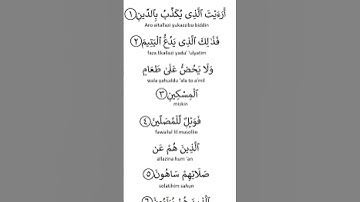 أَرَءَيْتَ ٱلَّذِى يُكَذِّبُ بِٱلدِّينِ ١
Aro aitallazi yukazzibu biddin
فَذَٰلِكَ ٱلَّذِى يَدُعُّ ٱلْيَتِيمَ ٢
faza likallazi yadu' 'ulyatim
وَلَا يَحُضُّ عَلَىٰ طَعَامِ
wala yahuddu 'ala to'amil
ٱلْمِسْكِينِ ٣
miskin
فَوَيْلٌ لِّلْمُصَلِّينَ ٤
fawailul lil musollin
ٱلَّذِينَ هُمْ عَن
allazina hum 'an
صَلَاتِهِمْ سَاهُونَ ٥
solatihim sahun